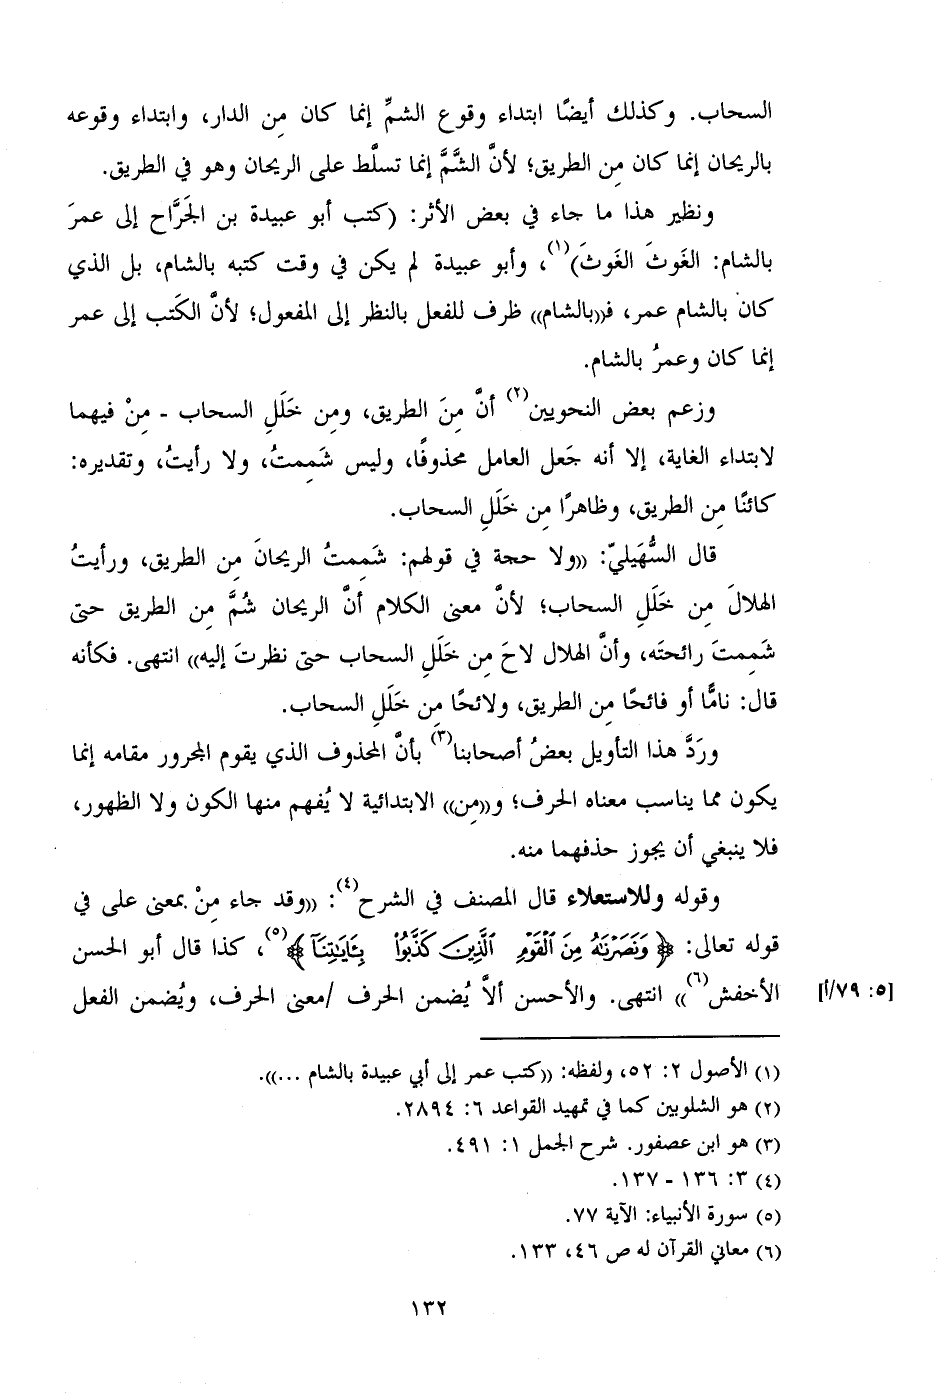 السحاب. وكذلك أيضًا ابتداء وقوع الشمِّ إنما كان مِن الدار، وابتداء وقوعه
بالريحان إنما كان مِن الطريق؛ لأنَّ الشَّمَّ إنما تسلَّط على الريحان وهو في الطريق.
ونظير هذا ما جاء في بعض الأثر: (كتب أبو عبيدة بن الجَرَّاح إلى عمرَ
بالشام: الغَوثَ الغَوثَ)(١)، وأبو عبيدة لم يكن في وقت كتبه بالشام، بل الذي
كان بالشام عمر، فـ((بالشام)) ظرف للفعل بالنظر إلى المفعول؛ لأنَّ الكَتب إلى عمر
إنما كان وعمرُ بالشام.
وزعم بعض النحويين(٢) أنَّ مِنَ الطريق، ومِن خَلَلِ السحاب - مِنْ فيهما
لابتداء الغاية، إلا أنه جَعل العامل محذوفًا، وليس شَمِمتُ، ولا رأيتُ، وتقديره:
كائنًا مِن الطريق، وظاهرًا مِن خَلَلِ السحاب.
قال السُّهَيليّ: ((ولا حجة في قولهم: شَمِمتُ الريحانَ مِن الطريق، ورأيتُ
الهلالَ مِن خَلَلِ السحاب؛ لأنَّ معنى الكلام أنَّ الريحان شُمَّ مِن الطريق حتى
شَمِمتَ رائحتَه، وأنَّ الهلال لاحَ مِن خَلَلِ السحاب حتى نظرتَ إليه)) انتهى. فكأنه
قال: نامًّا أو فائحًا مِن الطريق، ولائحًا مِن خَلَلِ السحاب.
ورَدَّ هذا التأويل بعضُ أصحابنا(٣) بأنَّ المحذوف الذي يقوم المجرور مقامه إنما
يكون مما يناسب معناه الحرف؛ و((مِن)) الابتدائية لا يُفهم منها الكون ولا الظهور،
فلا ينبغي أن يجوز حذفهما منه.
وقوله وللاستعلاء قال المصنف في الشرح(٤): ((وقد جاء مِنْ بمعنى على في
قوله تعالى: ﴿وَنَصَرْنَٰهُ مِنَ ٱلْقَوْمِ ٱلَّذِينَ كَذَّبُوا۟ بِـَٔايَٰتِنَآ﴾(٥)، كذا قال أبو الحسن
الأخفش(٦))) انتهى. والأحسن ألاَّ يُضمن الحرف /معنى الحرف، ويُضمن الفعل [٥: ٧٩/أ]
(١) الأصول ٢: ٥٢، ولفظه: ((كتب عمر إلى أبي عبيدة بالشام ...)).
(٢) هو الشلوبين كما في تمهيد القواعد ٦: ٢٨٩٤.
(٣) هو ابن عصفور. شرح الجمل ١: ٤٩١.
(٤) ٣: ١٣٦ - ١٣٧.
(٥) سورة الأنبياء: الآية ٧٧.
(٦) معاني القرآن له ص ٤٦، ١٣٣.
١٣٢